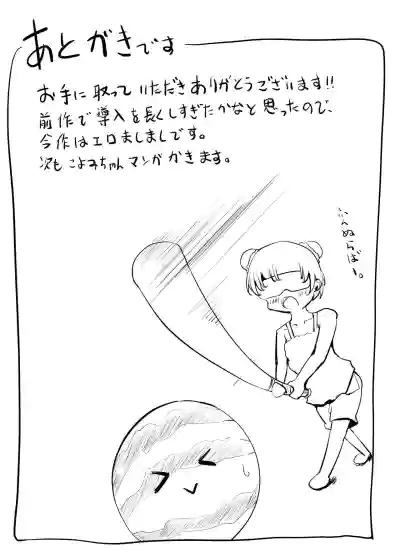 あとがきです
お手に取っていただきありがとうございます!!
前作で導入を長くしすぎたかなと思ったので、
今作はエロましましです。
次もこよみちゃんマンガかきます。
ふんぬらばー。